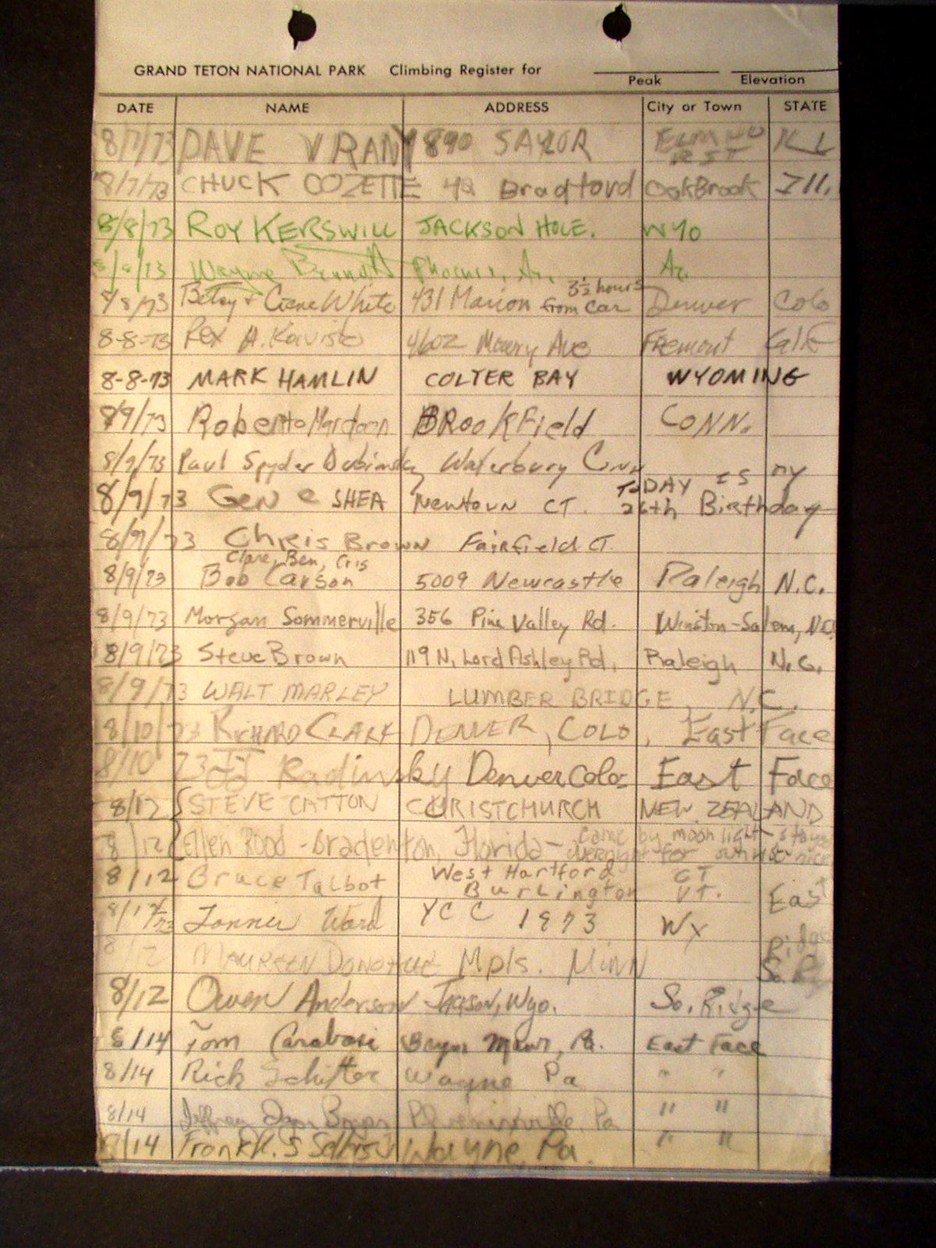 GRAND TETON NATIONAL PARK Climbing Register for
Peak Elevation
DATE NAME ADDRESS City or Town STATE
8/7/73 DAVE VRANY 890 SAYLOR
8/7/73 CHUCK COZETTE 42 Bradford OakBrook Ill.
8/8/73 ROY KERSWILL JACKSON HOLE. WYO
8/8/73 Wayne Phoenix, Az. Az.
8/8/73 Betsy + Gene White 431 Marion 3½ hours from car Denver Colo
8-8-73 Rex A. Koivisto 4602 Mowry Ave Fremont Calif
8-8-73 MARK HAMLIN COLTER BAY WYOMING
8/9/73 Roberto BROOKField CONN.
8/9/73 Paul Spyder Dubinsky Waterbury Conn
8/9/73 Gene SHEA Newtown CT. TODAY IS my 26th Birthday
8/9/73 Chris Brown Fairfield CT.
Clare, Ben, Cris
8/9/73 Bob Carson 5009 Newcastle Raleigh N.C.
8/9/73 Morgan Sommerville 356 Pine Valley Rd. Winston-Salem, N.C.
8/9/73 Steve Brown 119 N. Lord Ashley Rd. Raleigh N.C.
8/9/73 WALT MARLEY LUMBER BRIDGE, N.C.
8/10/73 RICHARD CLARK DENVER, COLO, East Face
8/10 73 Radinsky Denver Colo East Face
8/12 STEVE CATTON CHRISTCHURCH NEW ZEALAND
8/12 Ellen Rood - Bradenton, Florida - came by moonlight - stayed overnight for sunrise - nice
8/12 Bruce Talbot West Hartford CT
Burlington VT. East
8/12/73 Lonnie Ward YCC 1973 WY Ridge
8/12 MAUREEN DONOHUE Mpls. MINN So. R
8/12 Owen Anderson Jackson, Wyo. So. Ridge
8/14 Tom Carabasi Bryn Mawr, Pa. East Face
8/14 Rick Wayne Pa " "
8/14 Jeffrey Phoenixville, Pa " "
8/14 Frank Wayne, Pa. " "